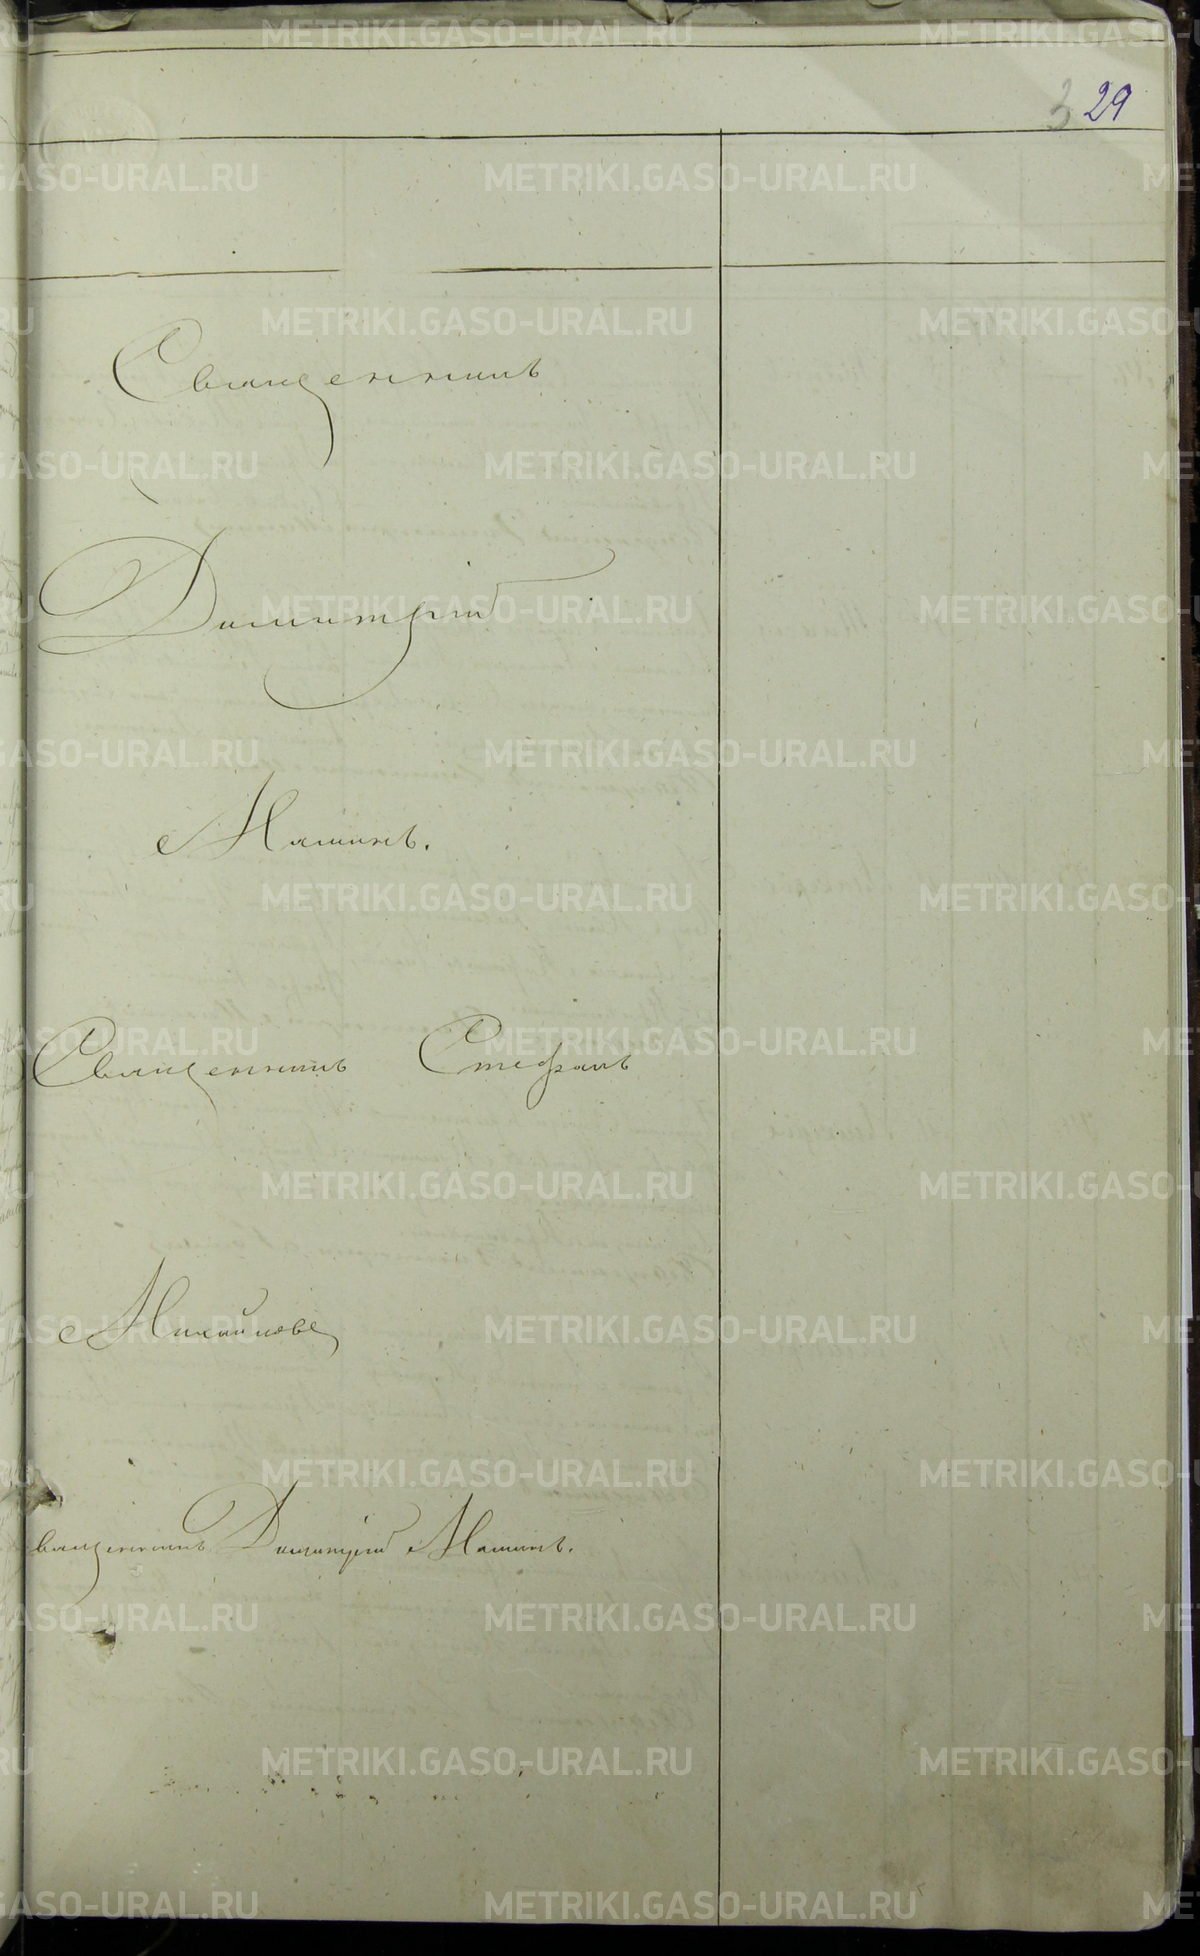 3 29
Священникъ
Димитрій
Мамин.
Священникъ Стефанъ
Михайловъ
Священникъ Димитрій Маминъ.
METRIKI.GASO-URAL.RU